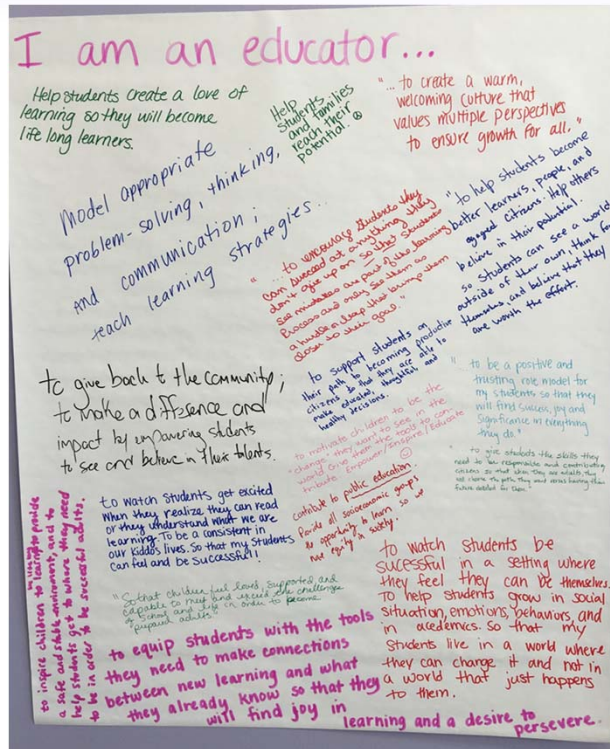 I am an educator...
Help students create a love of
learning so they will become
life long learners.
Help
Students
and families
reach their
potential. ☺
"... to create a warm,
welcoming culture that
values multiple perspectives
to ensure growth for all."
Model appropriate
problem-solving, thinking,
And communication;
teach learning strategies...
"...to encourage students they
can succeed at anything they
don't give up on so that students
see mistakes are part of the learning
process and may see them as
a hurdle or leap that bumps them
closer to their goal."
"to help students become
better learners, people, and
engaged citizens. Help others
believe in their potential.
so students can see a world
outside of their own, think for
themselves, and believe that they
are worth the effort.
to support students on
their path to becoming productive
citizens so that they are able to
make educated, thoughtful and
healthy decisions.
to give back to the community;
to make a difference and
impact by empowering students
to see and believe in their talents.
"...to be a positive and
trusting role model for
my students so that they
will find success, joy and
significance in everything
they do."
to motivate children to be the
"change" they want to see in the
world. Give them the tools to con-
tribute. Empower/Inspire/Educate
☺
"to give students the skills they
need to be responsible and contributing
citizens so that when they are adults, they
can choose the path they want
contribute to public education.
Provide all socioeconomic groups
an opportunity to learn so we
have equity in society.
to watch students get excited
when they realize they can read
or they understand what we are
learning. To be a consistent in
our kiddos lives. So that my students
can feel and be successful!
to inspire children to learn to provide
a safe and stable environment, and to
help students get to where they need
to be in order to be successful adults.
"So that children feel loved, supported and
capable to meet and exceed the challenges
of school and life in order to become
"prepared adults"
to watch students be
sucessful in a setting where
they feel they can be themselves.
To help students grow in social
situation, emotions, behaviors, and
in acedemics. so that my
students live in a world where
they can change it and not in
a world that just happens
to them.
to equip students with the tools
they need to make connections
between new learning and what
they already know so that they
will find joy in
learning and a desire to
persevere.